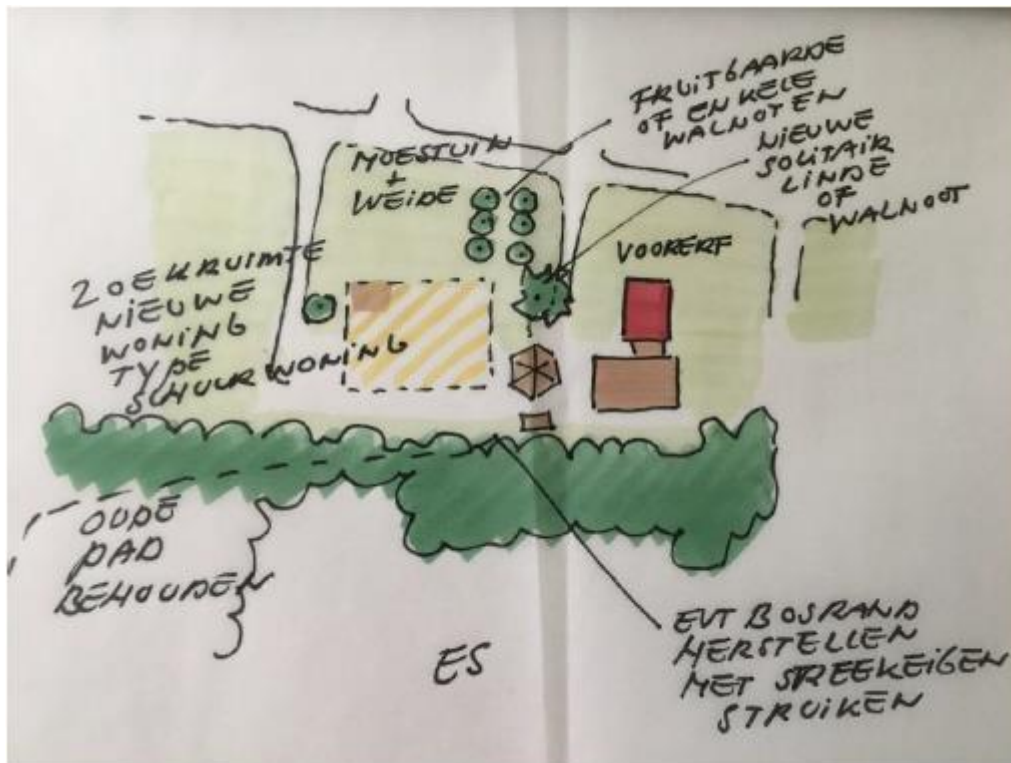 FRUITGAARDE
OF ENKELE
WALNOTEN
NIEUWE
SOLITAIR
LINDE
OF
WALNOOT
MOESTUIN
+
WEIDE
VOORERF
ZOEKRUIMTE
NIEUWE
WONING
TYPE
SCHUURWONING
OUDE
PAD
BEHOUDEN
ES
EVT BOSRAND
HERSTELLEN
MET STREEKEIGEN
STRUIKEN